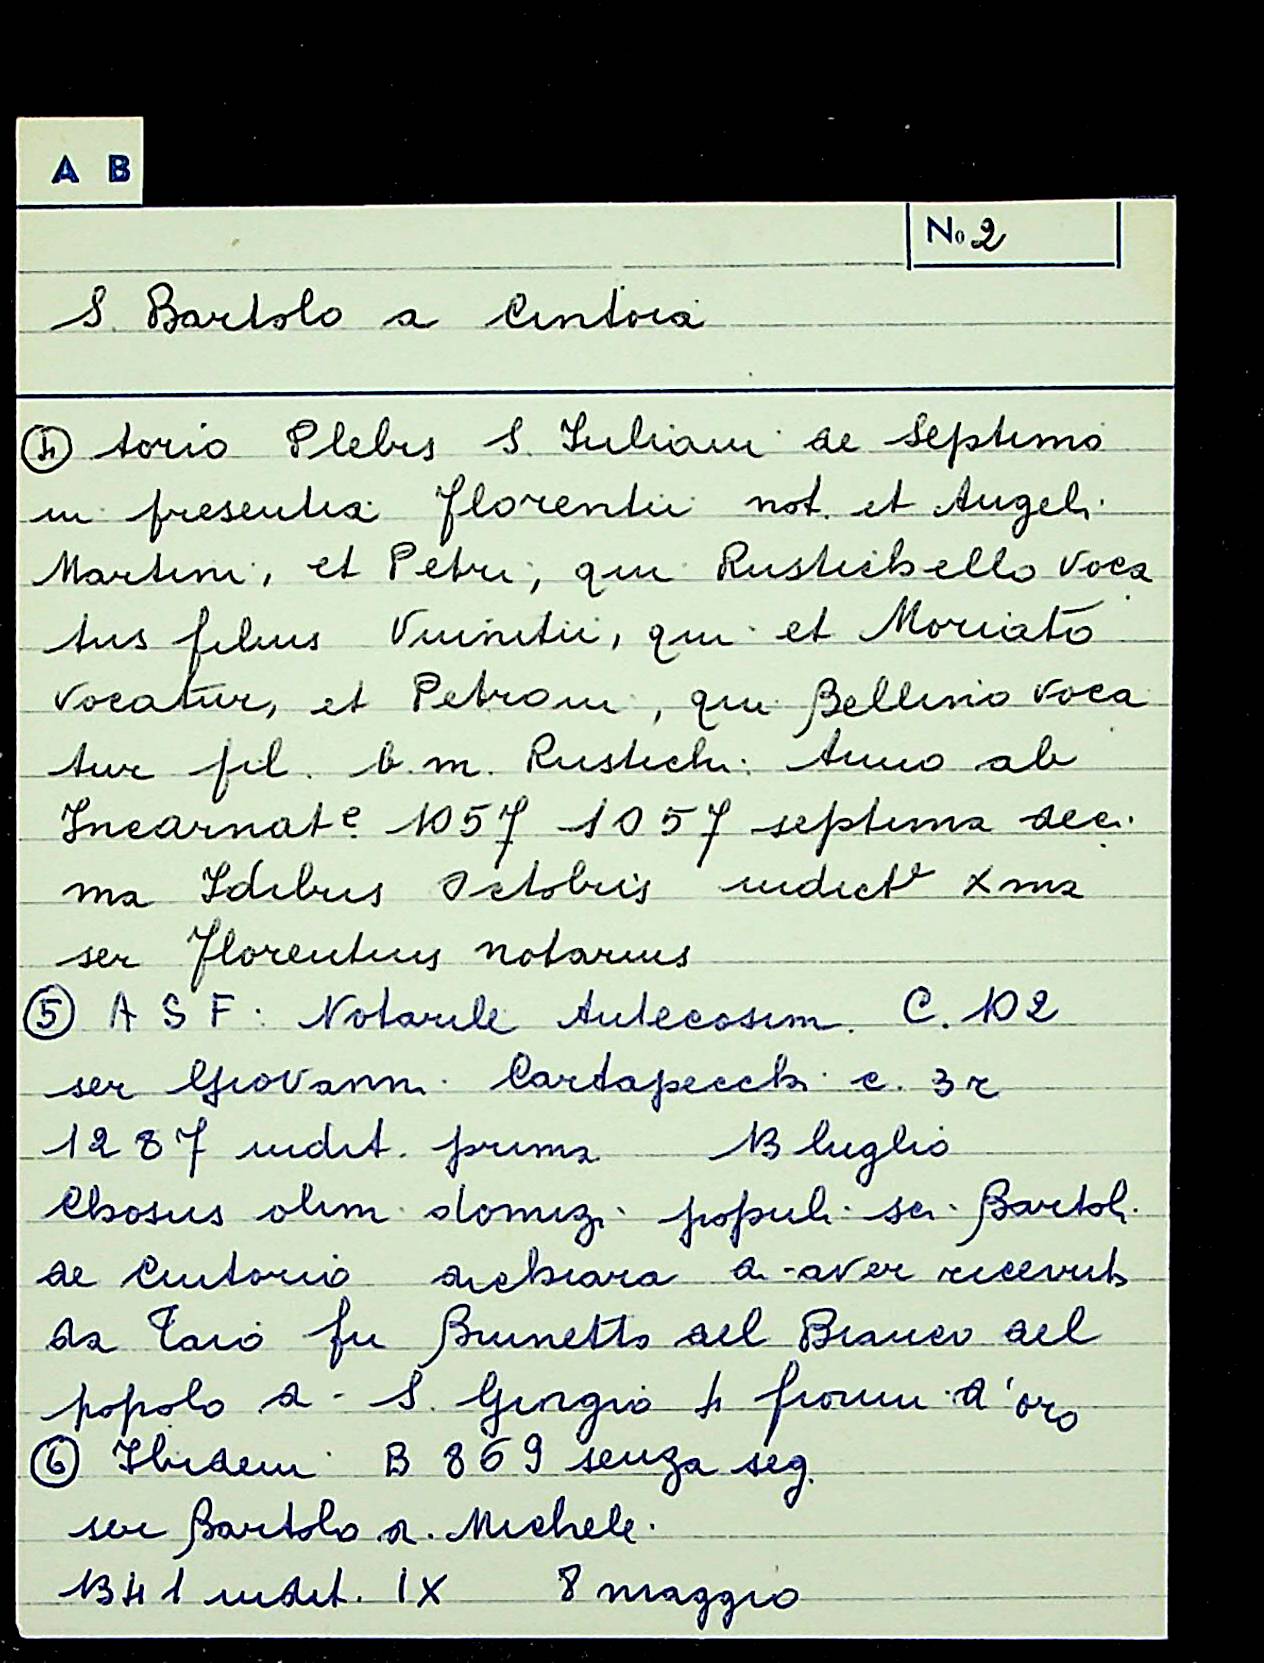 A B
No 2
S. Bartolo a Cintoia
④ torio Plebis S. Iuliani de Septimo
in presentia Florentii not. et Angeli
Martini, et Petri, qui Rustichello voca
tus filius Vuinitii, qui et Moriato
vocatur, et Petroni, qui Bellino voca
tur fil. b. m. Rustichi. Anno ab
Incarnatᵉ 1057 1057 septima deci
ma Idibus Octobris indictᵉ Xma
ser Florentius notarius
⑤ A S F. Notarile Antecosim. C. 102
ser Giovanni Cartapecchi c. 3r
1287 indit. prima 13 luglio
olim populi sci Bartoli
de Cintorio dichiara di aver ricevuto
da Taio fu Brunetto del Bianco del
popolo di S. Giorgio 4 fiorini d'oro
⑥ Ibidem B 869 senza seg.
ser Bartolo di Michele
1341 indit. IX 8 maggio